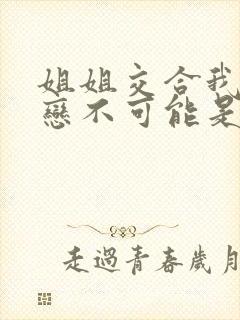 姐姐交合我
戀不可能是
走過青春歲月